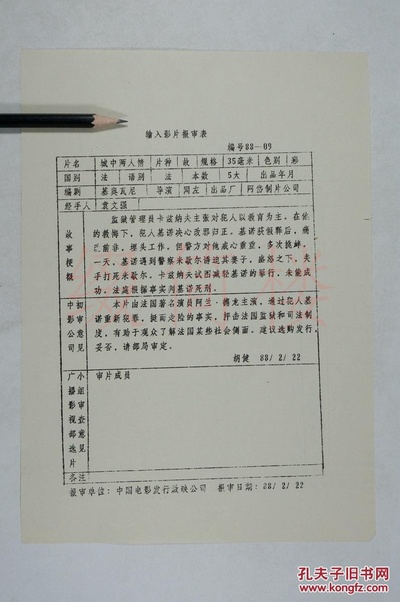 输入影片报审表
编号88—09
片名 城中两人情 片种 故 规格 35毫米 色别 彩
国别 法 语别 法 本数 5大 出品年月
编剧 基奥瓦尼 导演 同左 出品厂 阿岱制片公司
经手人 袁文强
故事梗概
监狱管理员卡兹纳夫主张对犯人以教育为主。在他
的教悔下,犯人基诺决心改邪归正。基诺获假释后,痛
改前非,埋头工作。但警方对他戒心重重,多次挑衅。
一天,基诺遇到警察米歇尔诱迫其妻子,盛怒之下,失
手打死米歇尔。卡兹纳夫试图减轻基诺的罪行,未能成
功。法庭根据事实判基诺死刑。
中影公司初审意见
本片由法国著名演员阿兰·德龙主演,通过犯人基
诺重新犯罪,挺而走险的事实,抨击法国监狱和司法制
度,有助于观众了解法国某些社会侧面。建议选购发行,
妥否,请部局审定。
胡健 88/2/22
广播影视部选片小组审查意见
审片成员
备注
报审单位:中国电影发行放映公司 报审日期:88/2/22
孔夫子旧书网